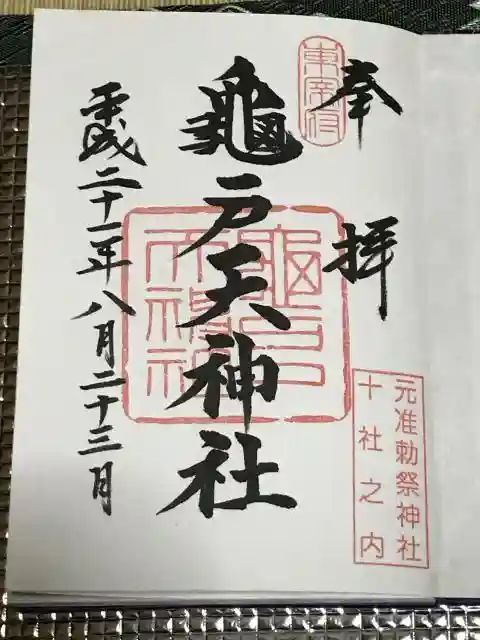 奉拝
東宰府
元准勅祭神社
十社之内
龜戸天神社
龜戸
天神社
平成二十一年八月二十三日